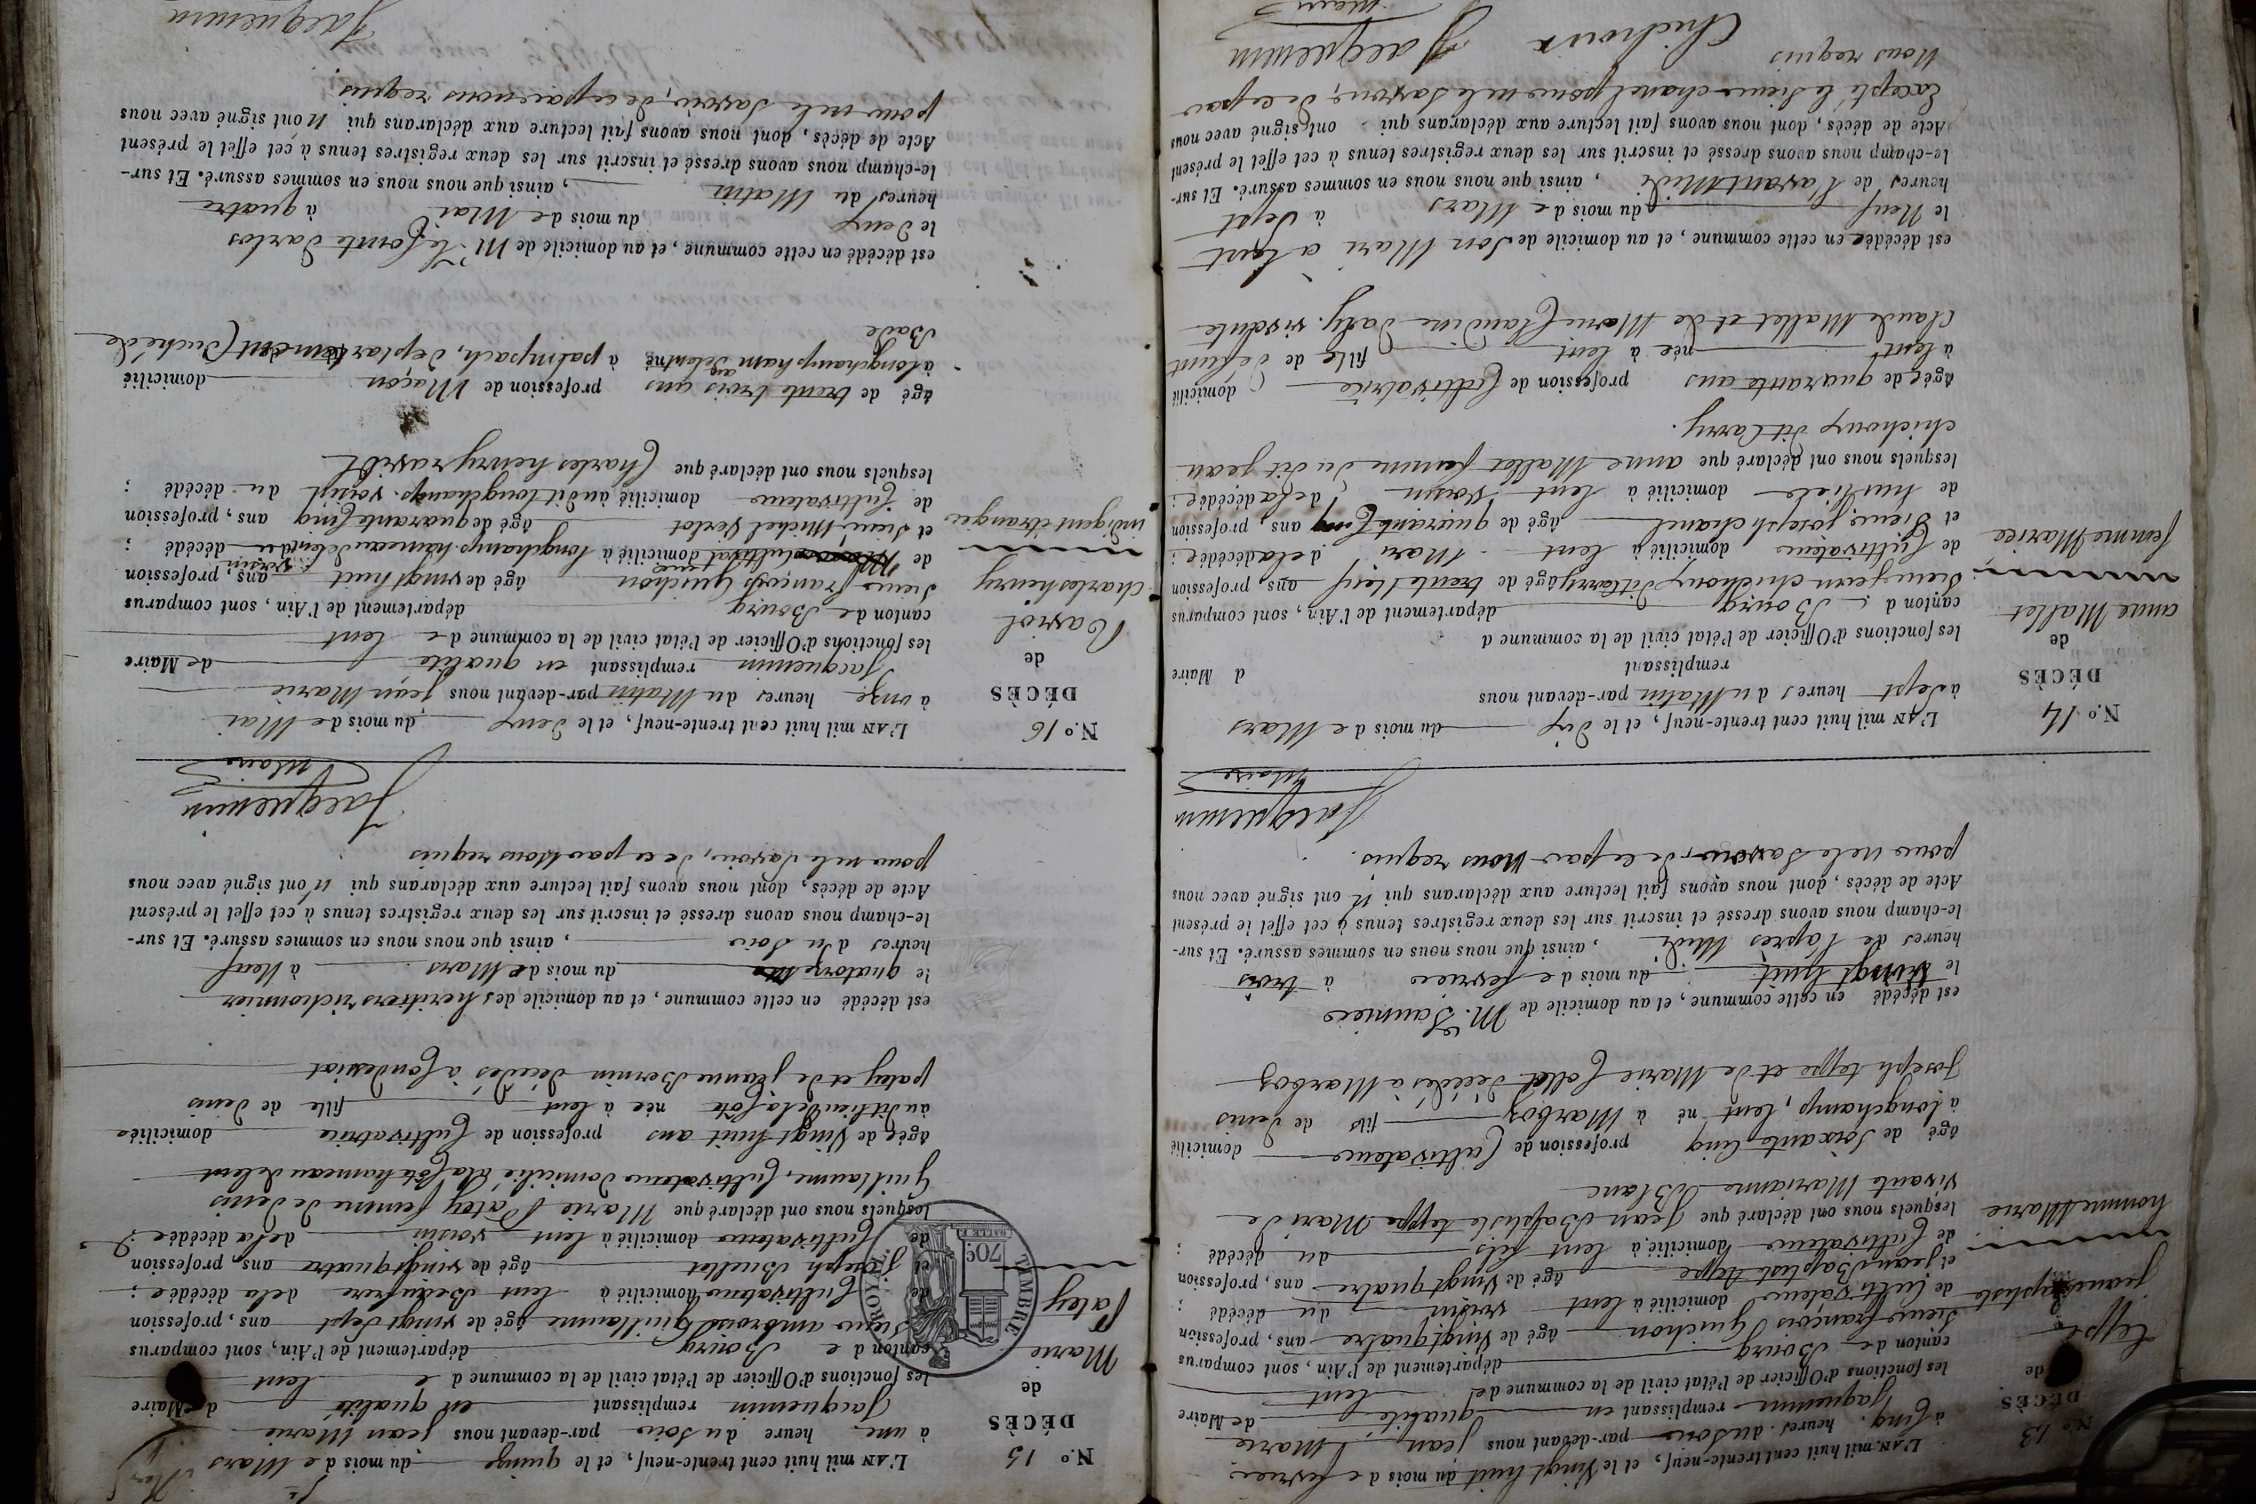 N.º 13
DÉCÈS
de
teppe
jean Baptiste
homme Marié
L'AN mil huit cent trente-neuf, et le Vingt huit du mois de fevrier
à Cinq heures du Soir par-devant nous jean Marie
Jaquemin remplissant en qualité de Maire
les fonctions d'Officier de l'état civil de la commune de lent
canton de Bourg département de l'Ain, sont comparus
Sieur françois Guichon âgé de Vingt quatre ans, profession
de Cultivateur domicilié à lent voisin du décédé ;
et jean Baptist teppe âgé de Vingt quatre ans, profession
de Cultivateur domicilié à lent fils du décédé ;
lesquels nous ont déclaré que jean Baptiste teppe Mari de
vivante Marianne Blanc
âgé de Soixante Cinq profession de Cultivateur domicilié
à longchamp, lent né à Marboz fils de Denis
Joseph teppe et de Marie Collet décédés à Marboz
est décédé en cette commune, et au domicile de M. Saunier
le Vingt huit du mois de fevrier à trois
heures de l'apres Midi , ainsi que nous nous en sommes assuré. Et sur-
le-champ nous avons dressé et inscrit sur les deux registres tenus à cet effet le présent
Acte de décès, dont nous avons fait lecture aux déclarans qui n'ont signé avec nous
pour ne le Savoir, de ce par Nous requis.
Jacquemin
Maire
N.º 14
DÉCÈS
de
anne Mallet
femme Mariée
L'AN mil huit cent trente-neuf, et le Dix du mois de Mars
à Sept heures du Matin par-devant nous
remplissant d Maire
les fonctions d'Officier de l'état civil de la commune d
canton d Bourg département de l'Ain, sont comparus
Sieur jean chichoux dit Carry âgé de trente Neuf ans, profession
de Cultivateur domicilié à lent Mari de la décédée ;
et Sieur joseph chanel âgé de quarante Cinq ans, profession
de domicilié à lent voisin de la décédée ;
lesquels nous ont déclaré que anne Mallet femme du dit jean
chichoux dit Carry.
âgée de quarante ans profession de Cultivatrice domicilié
à lent née à lent fille de défunt
Claude Mallet et de Marie Claudine
est décédée en cette commune, et au domicile de Son Mari a lent
le Neuf du mois de Mars à Sept
heures de l'avant Midi , ainsi que nous nous en sommes assuré. Et sur-
le-champ nous avons dressé et inscrit sur les deux registres tenus à cet effet le présent
Acte de décès, dont nous avons fait lecture aux déclarans qui ont signé avec nous
Excepté le Sieur chanel pour ne le Savoir, de ce par
Nous requis
Chichoux Jacquemin
Maire
N.º 15
DÉCÈS
de
Marie
Patey
TIMBRE ROYAL
70c
L'AN mil huit cent trente-neuf, et le quinze du mois de Mars
à une heure du Soir par-devant nous jean Marie
Jacquemin remplissant en qualité de Maire
les fonctions d'Officier de l'état civil de la commune de lent
canton de Bourg département de l'Ain, sont comparus
Sieur ambroise Guillaume âgé de vingt Sept ans, profession
de Cultivateur domicilié à lent Beaufrere de la décédée ;
et joseph Buellet âgé de vingt quatre ans, profession
de Cultivateur domicilié à lent voisin de la décédée ;
lesquels nous ont déclaré que Marie Patey femme de Denis
Guillaume, Cultivateur domicilié à la Côte hameau de lent
âgée de Vingt huit ans profession de Cultivatrice domiciliée
au dit lieu de la Côte née à lent fille de Denis
patey et de jeanne Bernin décédés à Condessiat
est décédé en cette commune, et au domicile des héritiers
le quatorze du mois de Mars à Neuf
heures du Soir , ainsi que nous nous en sommes assuré. Et sur-
le-champ nous avons dressé et inscrit sur les deux registres tenus à cet effet le présent
Acte de décès, dont nous avons fait lecture aux déclarans qui n'ont signé avec nous
pour ne le Savoir, de ce par Nous requis
Jacquemin
Maire
N.º 16
DÉCÈS
de
Raviol
Charles henry
indigent étranger
L'AN mil huit cent trente-neuf, et le Deux du mois de Mai
à onze heures du Matin par-devant nous jean Marie
Jacquemin remplissant en qualité de Maire
les fonctions d'Officier de l'état civil de la commune de lent
canton de Bourg département de l'Ain, sont comparus
Sieur françois Guichon âgé de vingt huit ans, profession
de Cultivateur domicilié à longchamp hameau de lent voisin du décédé ;
et Sieur Michel Verlot âgé de quarante Cinq ans, profession
de Cultivateur domicilié au dit longchamp. voisin du décédé ;
lesquels nous ont déclaré que Charles henry
âgé de trente trois ans profession de Maçon domicilié
à longchamp ham. de lent né à palmpach, département Duché de
Bade
est décédé en cette commune, et au domicile de Mr. le Comte Darlos
le Deux du mois de Mai à quatre
heures du Matin , ainsi que nous nous en sommes assuré. Et sur-
le-champ nous avons dressé et inscrit sur les deux registres tenus à cet effet le présent
Acte de décès, dont nous avons fait lecture aux déclarans qui n'ont signé avec nous
pour ne le Savoir, de ce par nous requis
Jacquemin